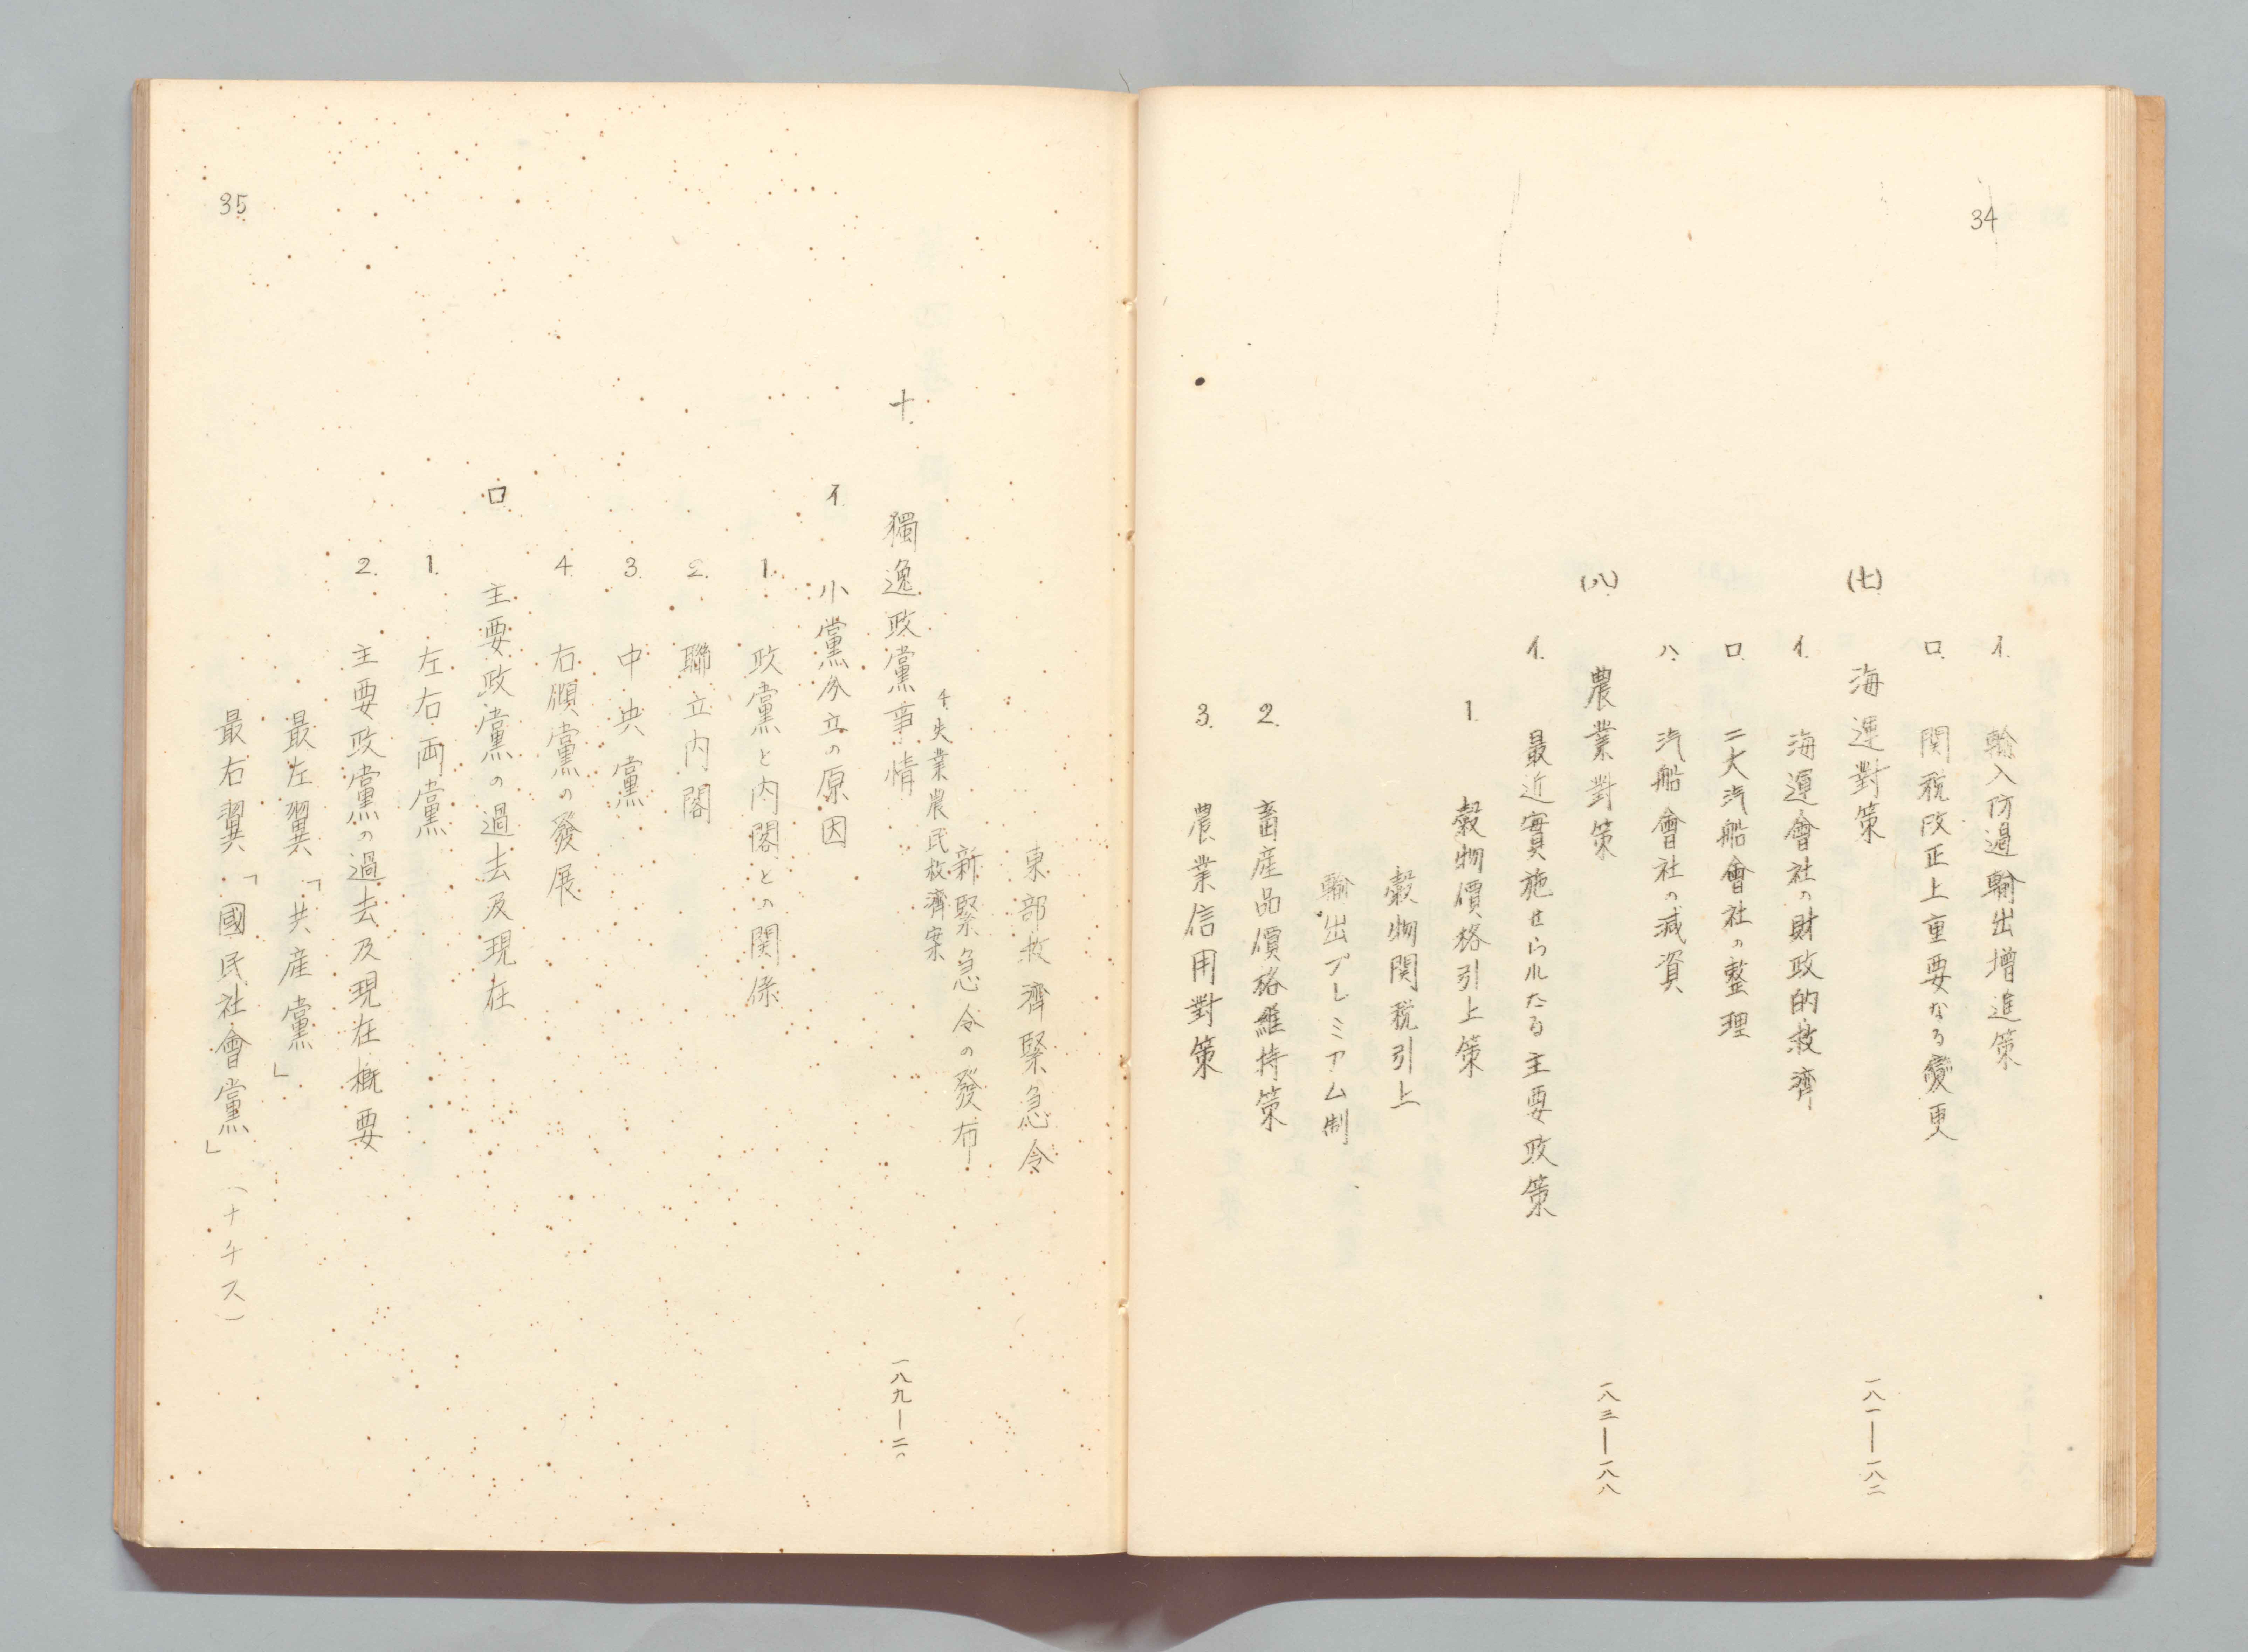 34
イ. 輸入防遏輸出増進策
ロ. 関税改正上重要なる変更
(七) 海運對策 一八一―一八二
イ. 海運會社の財政的救濟
ロ. 二大汽船會社の整理
ハ. 汽船會社の減資
(八) 農業對策 一八三―一八八
イ. 最近實施せられたる主要政策
1. 穀物價格引上策
穀物関税引上
輸出プレミアム制
2. 畜産品價格維持策
3. 農業信用對策
35
東部救濟緊急令
新緊急令の發布
4. 失業農民救濟案
十. 獨逸政黨事情 一八九―二〇
イ. 小黨分立の原因
1. 政黨と内閣との関係
2. 聯立内閣
3. 中央黨
4. 右傾黨の發展
ロ. 主要政黨の過去及現在
1. 左右両黨
2. 主要政黨の過去及現在概要
最左翼「共産黨」
最右翼「國民社會黨」(ナチス)